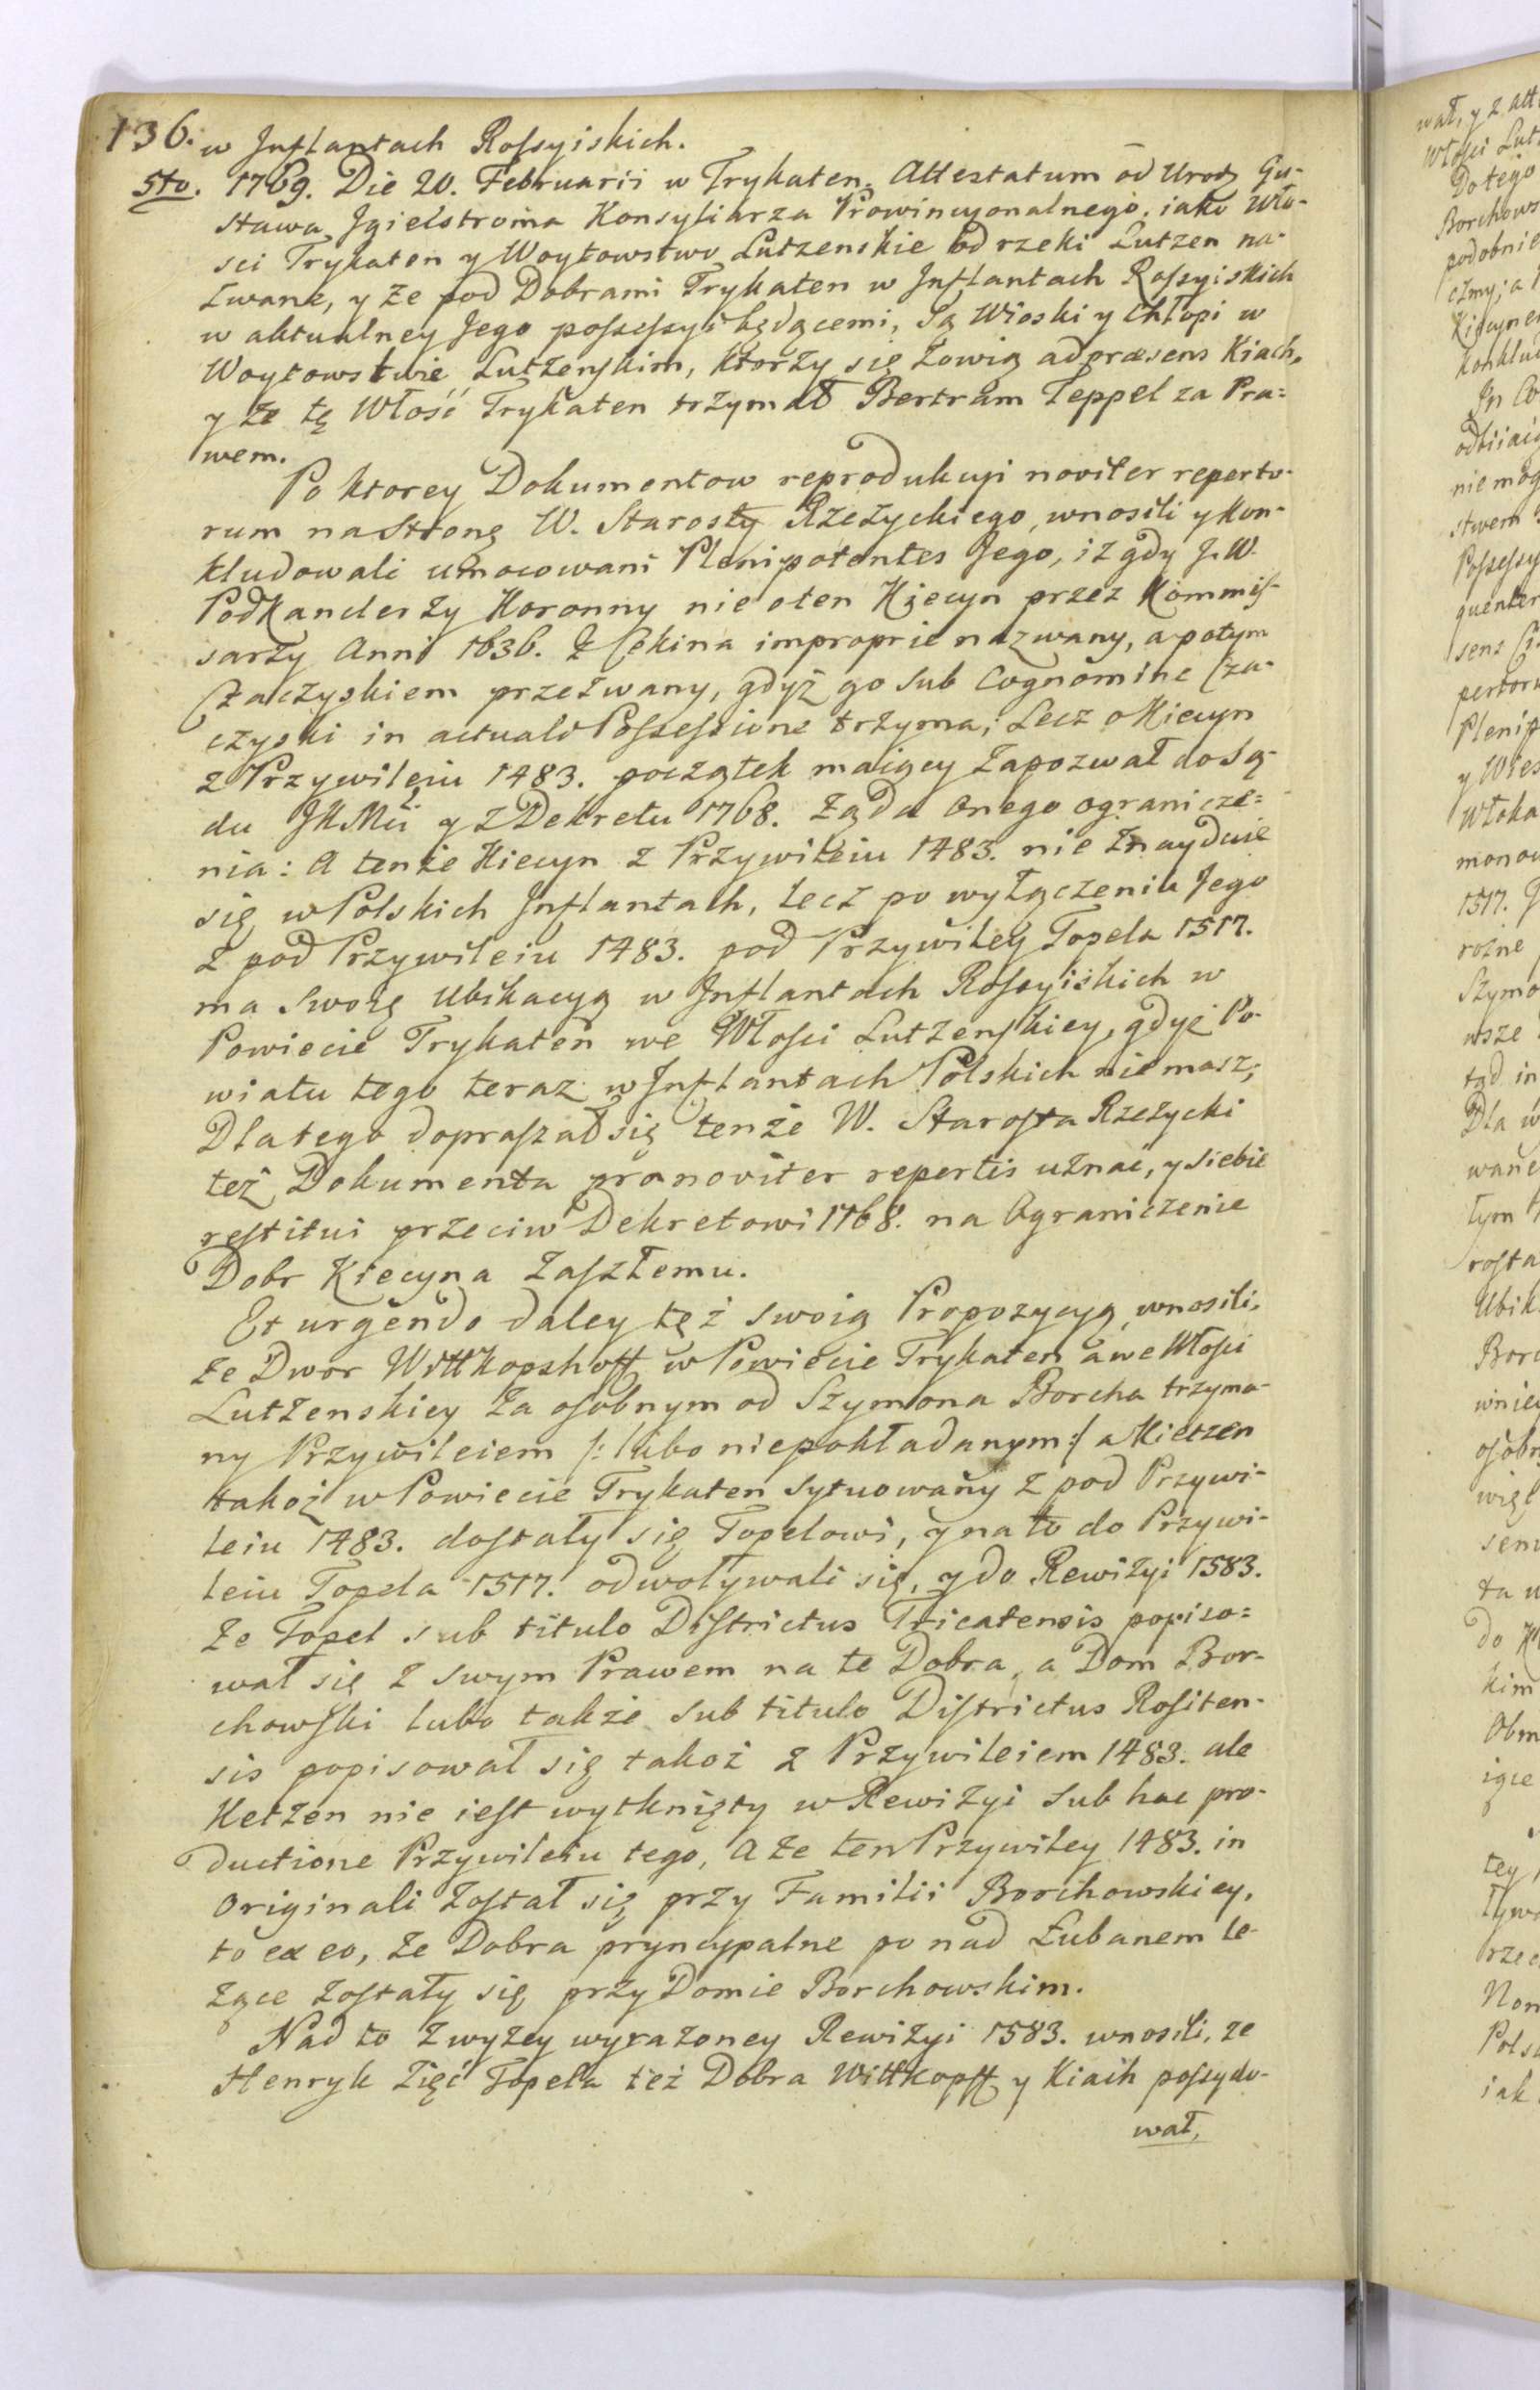 136. w Inflantach Rossyiskich.
5to. 1769. Die 20. Februarii w Trykaten. Attestatum od Urodz Gu-
stawa Jgielstroma Konsyliarza Prowincyonalnego. iako Wło-
sci Trykaten y Woytowstwo Lutzenskie od rzeki Lutzen na-
zwane, y ze pod Dobrami Trykaten w Inflantach Rossyiskich
w aktualney Jego possessyi będącemi, są Wioski y Chłopi w
Woytowstwie Lutzenskim, ktorzy się zowią ad præsens Kiach,
y ze tę Włość Trykaten trzymał Bertram Teppel za Pra=
wem.
Po ktorey Dokumentow reprodukcyi noviter reperto-
rum na stronę W. Starosty Rzezyckiego, wnosili y kon-
kludowali umocowani Plenipotentes Jego, iz gdy J. W.
Podkanclerzy Koronny nie o ten Kjecyn przez Kommis-
sarzy Anni 1636. Z Cekina improprie nazwany, a potym
Czaczyskiem przezwany, gdyż go sub Cognomine Cza-
czyski in actuale Possessione trzyma; Lecz o Kiecyn
z Przywileiu 1483. początek maiący zapozwał do Są-
du JKMci y z Dekretu 1768. żąda onego ogranicze=
nia: A tenże Kiecyn z Przywileiu 1483. nie znayduie
się w Polskich Inflantach, lecz po wyłączeniu Jego
z pod Przywileiu 1483. pod Przywiley Topela 1517.
ma swoię Ubikacyą w Inflantach Rossyiskich w
Powiecie Trykaten we Włości Lutzenskiey, gdyż Po-
wiatu tego teraz w Inflantach Polskich niemasz;
Dlatego dopraszał się tenże W. Starosta Rzezycki
też Dokumenta pro noviter repertis uznać, y siebie
restitui przeciw Dekretowi 1768. na Ograniczenie
Dobr Kiecyna zaszłemu.
Et urgendo daley też swoią Propozycyą wnosili,
że Dwor Wittkopshoff w Powiecie Trykaten a we Włości
Lutzenskiey za osobnym od Szymona Borcha trzyma-
ny Przywileiem /: lubo niepokładanym :/ a Kietzen
takoż w Powiecie Trykaten sytuowany z pod Przywi-
leiu 1483. dostały się Topelowi, y na to do Przywi-
leiu Topela 1517. odwoływali się, y do Rewizyi 1583.
że Topel sub titulo Districtus Tricatensis popiso=
wał się z swym Prawem na te Dobra, a Dom Bor-
chowski lubo także sub titulo Districtus Rositen-
sis popisował się takoż z Przywileiem 1483. ale
Ketzen nie iest wytknięty w Rewizyi sub hac pro-
ductione Przywileiu tego, A że ten Przywiley 1483. in
Originali został się przy Familii Borchowskiey,
to ex eo, że Dobra pryncypalne po nad Łubanem le-
żące zostały się przy Domie Borchowskim.
Nad to z wyżey wyrażoney Rewizyi 1583. wnosili, że
Henryk Zięć Topela też Dobra Wittkopff y Kiaih possydo-
wał,